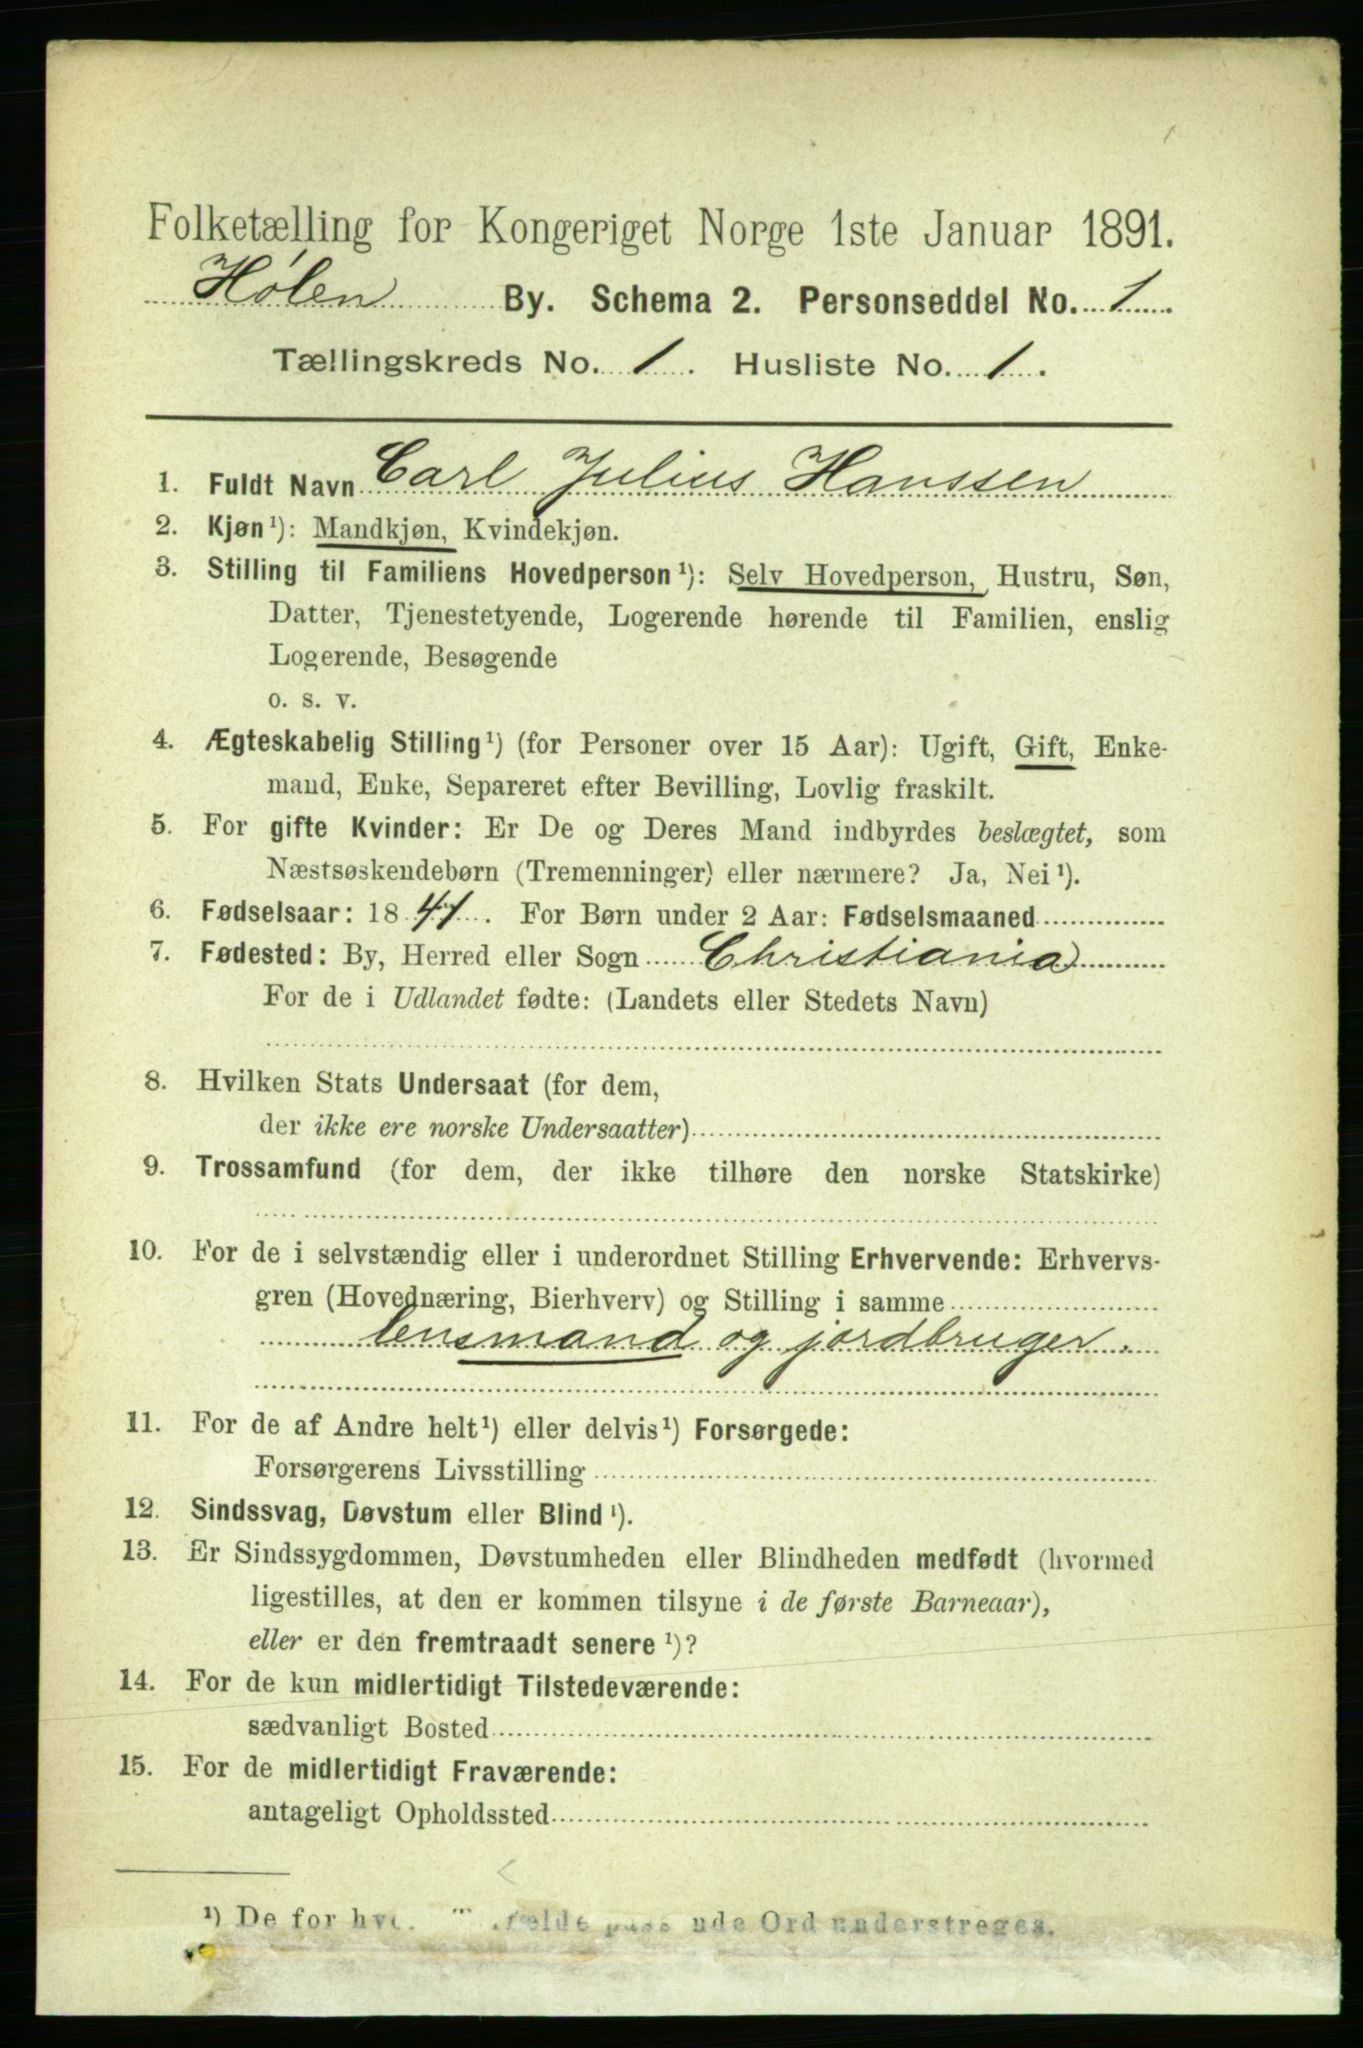 1
Folketælling for Kongeriget Norge 1ste Januar 1891.
Hølen By. Schema 2. Personseddel No. 1
Tællingskreds No. 1. Husliste No. 1.
1. Fuldt Navn Carl Julius Hanssen
2. Kjøn¹): Mandkjøn, Kvindekjøn.
3. Stilling til Familiens Hovedperson¹): Selv Hovedperson, Hustru, Søn,
Datter, Tjenestetyende, Logerende hørende til Familien, enslig
Logerende, Besøgende
o. s. v.
4. Ægteskabelig Stilling¹) (for Personer over 15 Aar): Ugift, Gift, Enke-
mand, Enke, Separeret efter Bevilling, Lovlig fraskilt.
5. For gifte Kvinder: Er De og Deres Mand indbyrdes beslægtet, som
Næstsøskendebørn (Tremenninger) eller nærmere? Ja, Nei¹).
6. Fødselsaar: 1841. For Børn under 2 Aar: Fødselsmaaned
7. Fødested: By, Herred eller Sogn Christiania
For de i Udlandet fødte: (Landets eller Stedets Navn)
8. Hvilken Stats Undersaat (for dem,
der ikke ere norske Undersaatter)
9. Trossamfund (for dem, der ikke tilhøre den norske Statskirke)
10. For de i selvstændig eller i underordnet Stilling Erhvervende: Erhvervs-
gren (Hovednæring, Bierhverv) og Stilling i samme
lensmand og jordbruger.
11. For de af Andre helt¹) eller delvis¹) Forsørgede:
Forsørgerens Livsstilling
12. Sindssvag, Døvstum eller Blind¹).
13. Er Sindssygdommen, Døvstumheden eller Blindheden medfødt (hvormed
ligestilles, at den er kommen tilsyne i de første Barneaar),
eller er den fremtraadt senere¹)?
14. For de kun midlertidigt Tilstedeværende:
sædvanligt Bosted
15. For de midlertidigt Fraværende:
antageligt Opholdssted
¹) De for Ord understreges.